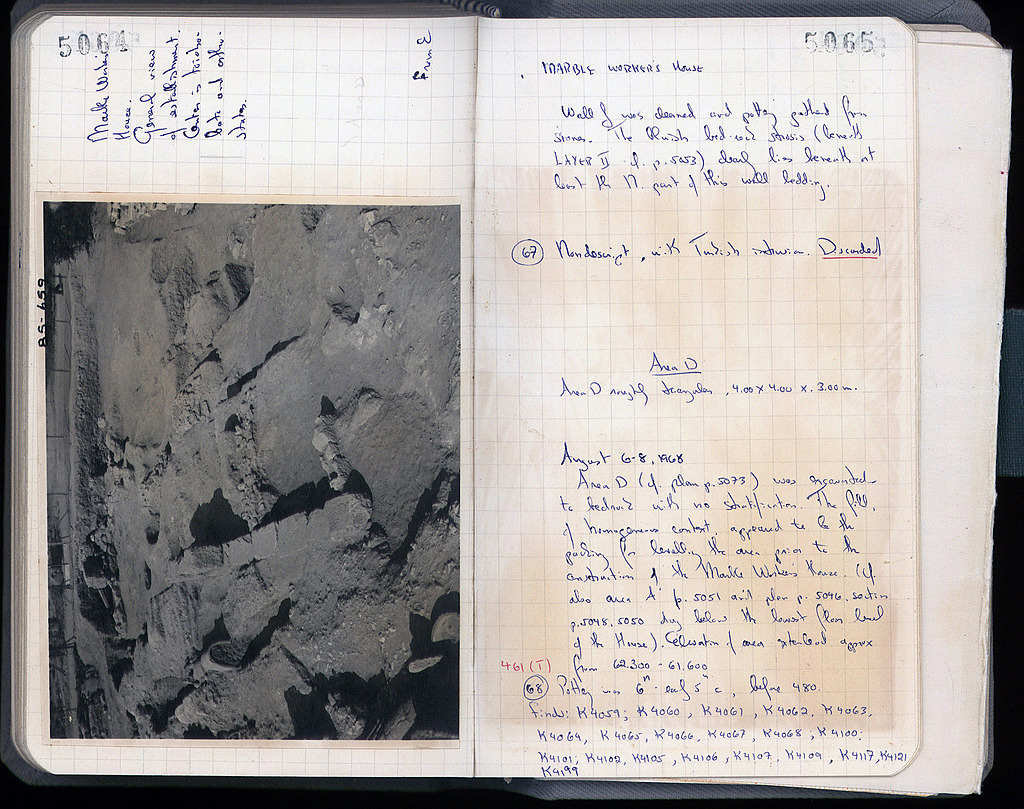 5064
Marble Worker's
House.
General view
of establishment.
Center is
and ortho-
states.
From E
85-459
5065
MARBLE WORKER'S HOUSE
Wall J was cleaned and pottery gathered from
stones. The bed-rock (beneath
LAYER II cf. p. 5053) clearly lies beneath at
least the N. part of this wall bedding.
67 Nondescript, with Turkish intrusion. Discarded
Area D
Area D roughly triangular, 4.00 x 4.00 x 3.00 m.
August 6-8, 1968
Area D (cf. plan p. 5073) was excavated
to bedrock with no stratification. The fill,
of homogeneous context, appeared to be the
packing for levelling the area prior to the
construction of the Marble Worker's House. (cf.
also area A' p. 5051 and plan p. 5046, section
p. 5048, 5050 dug below the lowest floor level
of the House). Elevation of area extended approx
from 62.300 - 61.600
461 (T)
68 Pottery was 6th - early 5th c, before 480.
Finds: K4059; K4060, K4061, K4062, K4063,
K4064, K4065, K4066, K4067, K4068, K4100,
K4101; K4102, K4105, K4106, K4107, K4109, K4117, K4121
K4199